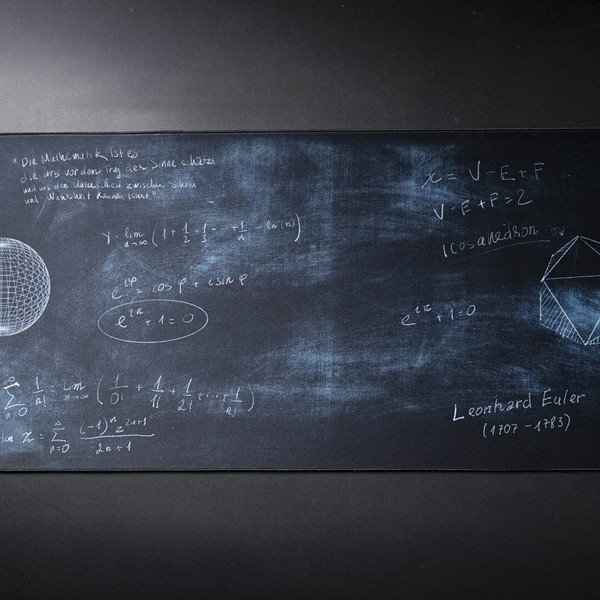 "Die Mathematik ist es
die uns vor dem Trug der Sinne schützt
und uns den Unterschied zwischen Schein
und Wahrheit kennen lehrt"
γ = lim n→∞ (1 + 1/2 + 1/3 + ... + 1/n − ln(n))
e^iφ = cos φ + i sin φ
e^iπ + 1 = 0
∞ Σ n=0 1/n! = lim n→∞ (1/0! + 1/1! + 1/2! + ... + 1/n!)
z = ∞ Σ n=0 (-1)^n z^2n+1 / 2n+1
x = V − E + F
V − E + F = 2
Icosahedron
e^iπ + 1 = 0
Leonhard Euler
(1707 − 1783)